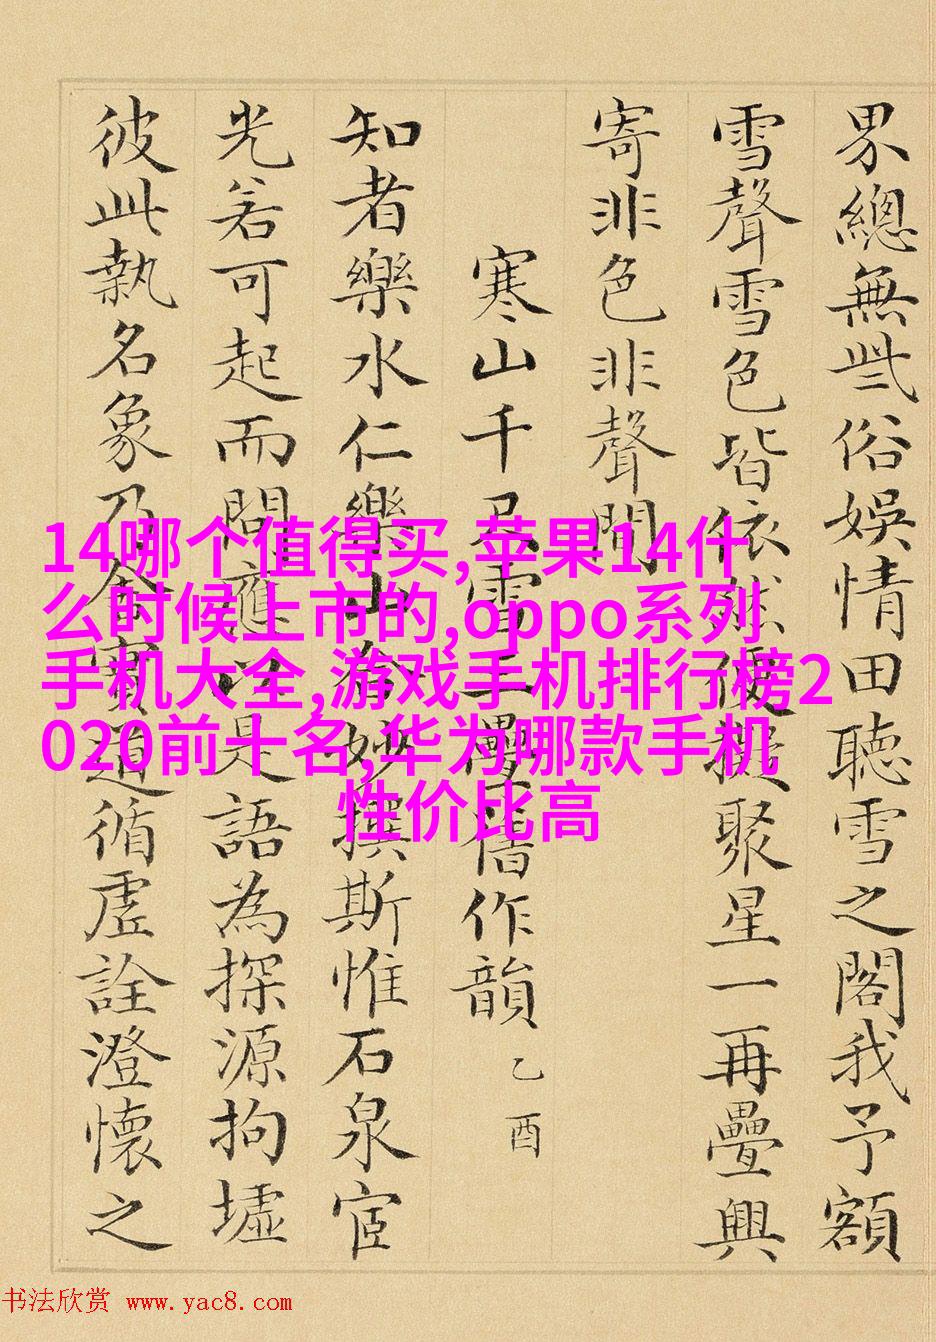 界總無些俗娛情田聽雪之閣我予額
雪聲雪色皆依然便擬聚星一再疊興
寄非色非聲間
寒山千尺雪疊舊作韻 乙酉
知者樂水仁樂山妙撰斯惟石泉宦
光若可起而問應以是語為探源拘墟
彼此執名象乃舍實道循虛詮澄懷之
14哪个值得买,苹果14什
么时候上市的,oppo系列
手机大全,游戏手机排行榜2
020前十名,华为哪款手机
性价比高
书法欣赏 www.yac8.com